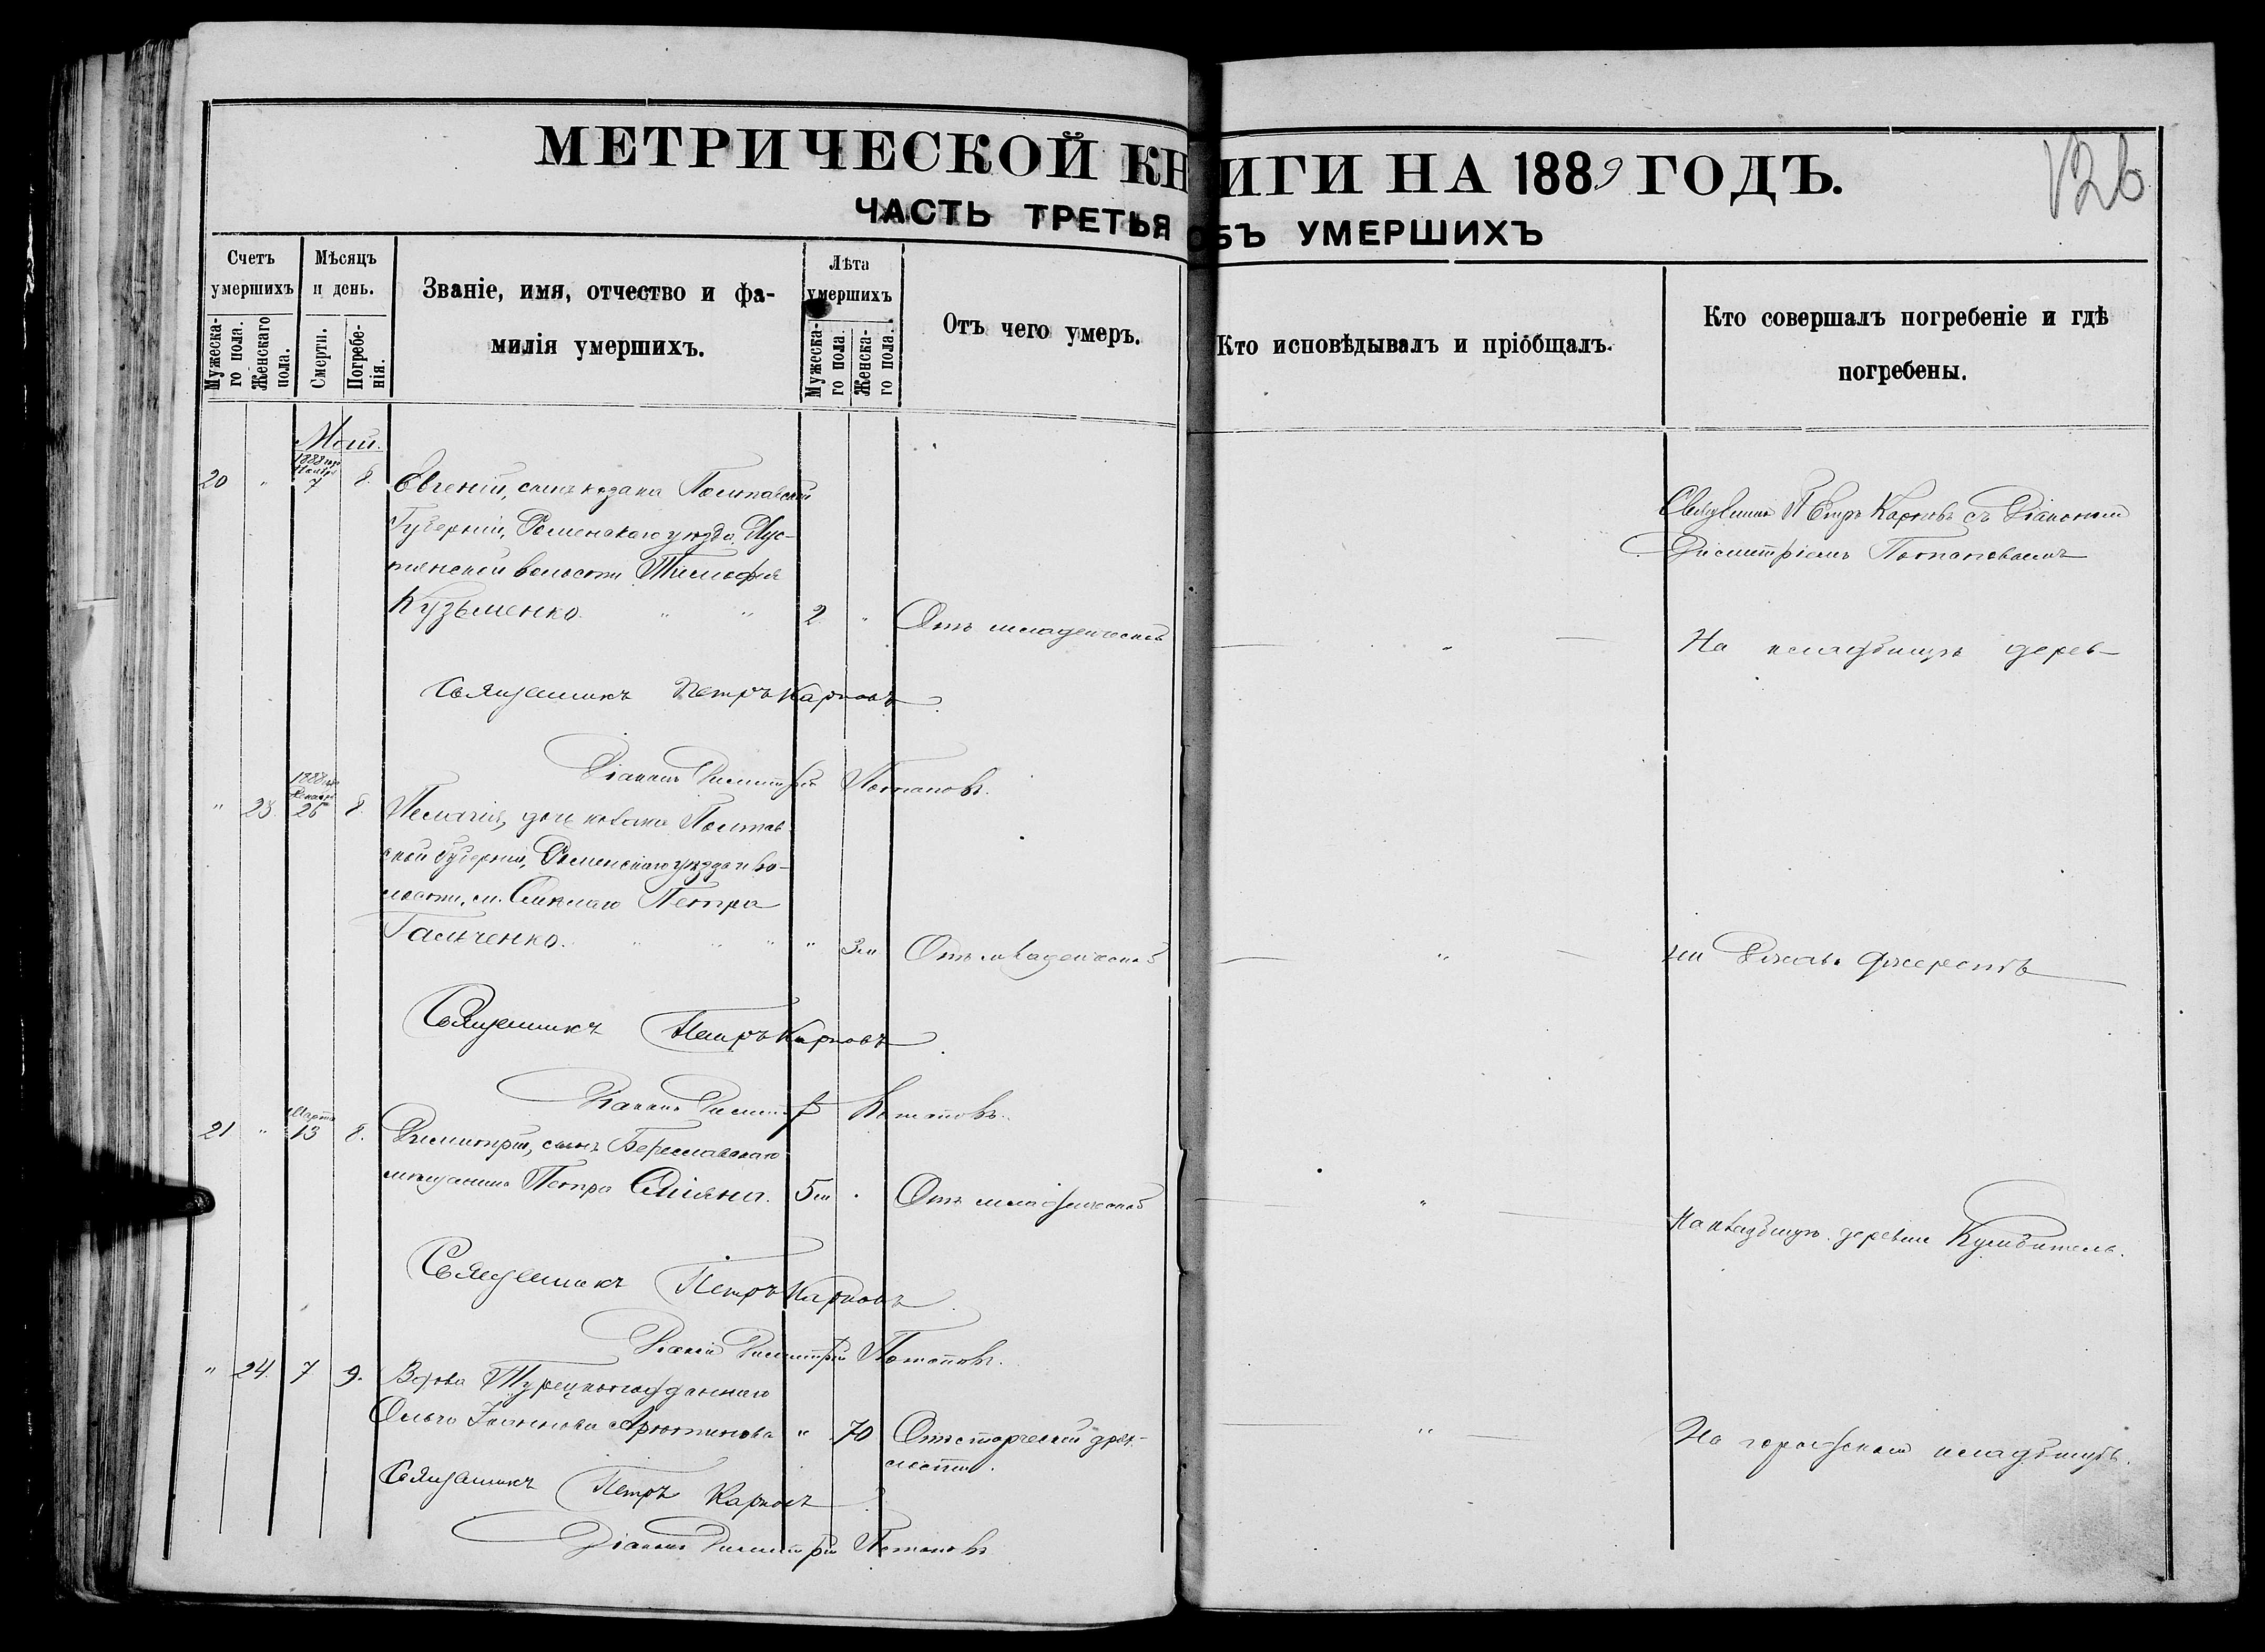 МЕТРИЧЕСКОЙ КНИГИ НА 1889 ГОДЪ.
126
ЧАСТЬ ТРЕТЬЯ ОБЪ УМЕРШИХЪ
Счетъ умершихъ
Мужеска-го пола.
Женскаго пола.
Мѣсяцъ и день.
Смерти.
Погребе-нія.
Званіе, имя, отчество и фа-
милія умершихъ.
Лѣта умершихъ
Мужеска-го пола.
Женска-го пола.
Отъ чего умеръ.
Кто исповѣдывалъ и пріобщалъ.
Кто совершалъ погребеніе и гдѣ
погребены.
Май.
1888 года Ноября
20 " 7 8. Евгеній, сынъ козака Полтавской
Губерніи, Роменскаго уѣзда,
волости Тимофея
Кузьменко. " " 2 " Отъ младенческой
Священникъ Петръ Карповъ съ Діакономъ
Димитріемъ Потаповымъ
На кладбищѣ дерев-
Священникъ Петръ Карповъ.
Діаконъ Димитрій Потаповъ.
1888 года Декабря
" 23 26 8. Пелагія, дочь козака Полтав-
ской Губерніи, Роменскаго уѣзда и во-
лости, Петра
Гальченко. " " " " 3м Отъ младенческой
ни
Священникъ Петръ Карповъ.
Діаконъ Димитрій Потаповъ.
Марта
21 " 13 8. Димитрій, сынъ Береславскаго
мѣщанина Петра 5м " Отъ младенческой
На кладбищѣ деревни
Священникъ Петръ Карповъ.
Діаконъ Димитрій Потаповъ.
" 24. 7 9. Вдова Турецкоподданнаго
Ольга Іоаннова Арютинова " 70 Отъ старческой дрях-
лости.
На городскомъ кладбищѣ.
Священникъ Петръ Карповъ
Діаконъ Димитрій Потаповъ